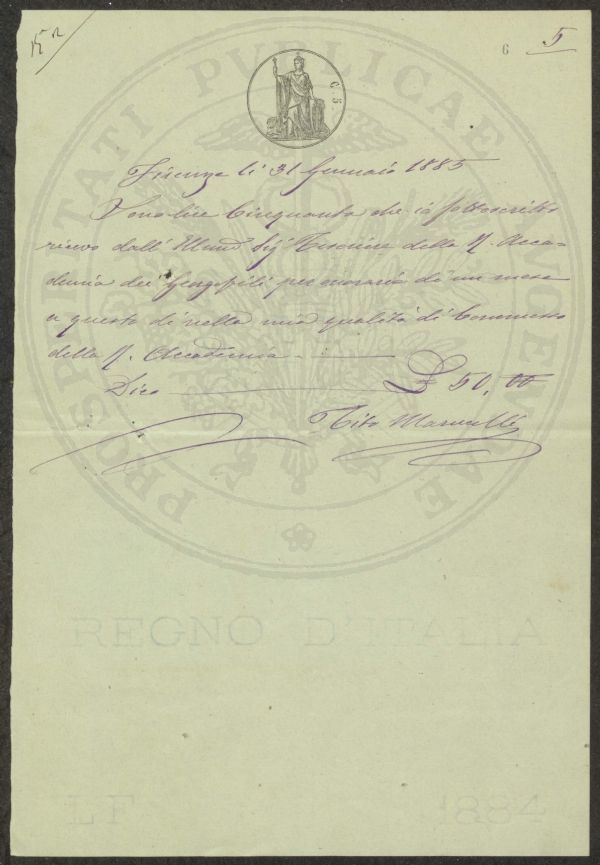 12
6 5
C. 5.
Firenze li 31 Gennaio 1885
Sono lire Cinquanta che io sottoscritto
ricevo dall' Illmo Sigr Tesoriere della R. Acca-
demia dei Georgofili per onorario di un mese
a questo dì nella mia qualità di Commesso
della R. Accademia
Dico £ 50,00
Tito
PROSPERITATI PUBLICAE AUGENDAE
REGNO D'ITALIA
LF 1884